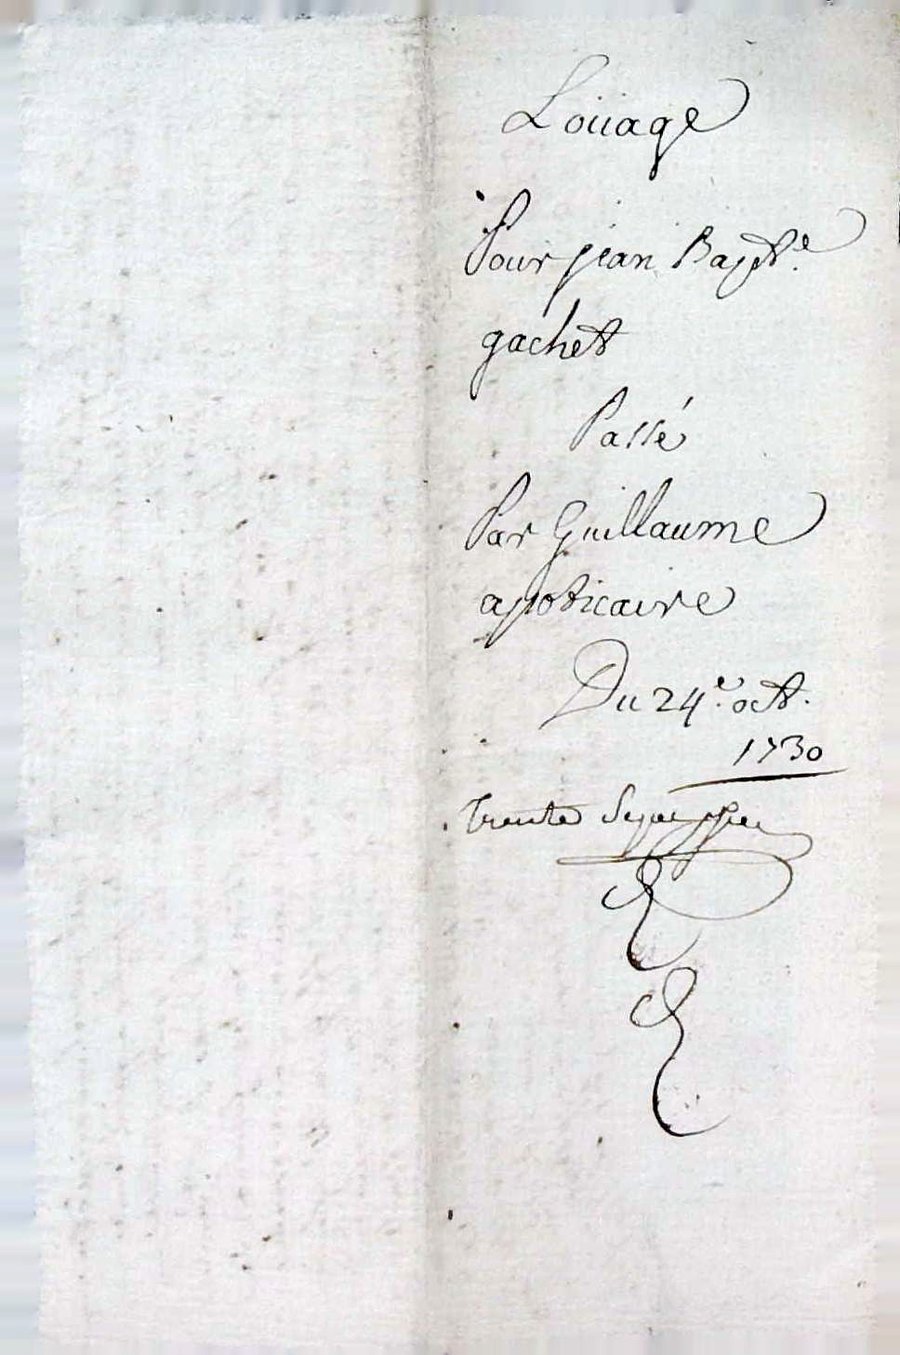 Loüage
Pour jean Bapt.e
gachet
Passé
Par Guillaume
apoticaire
Du 24.e oct.
1730
trente Sept